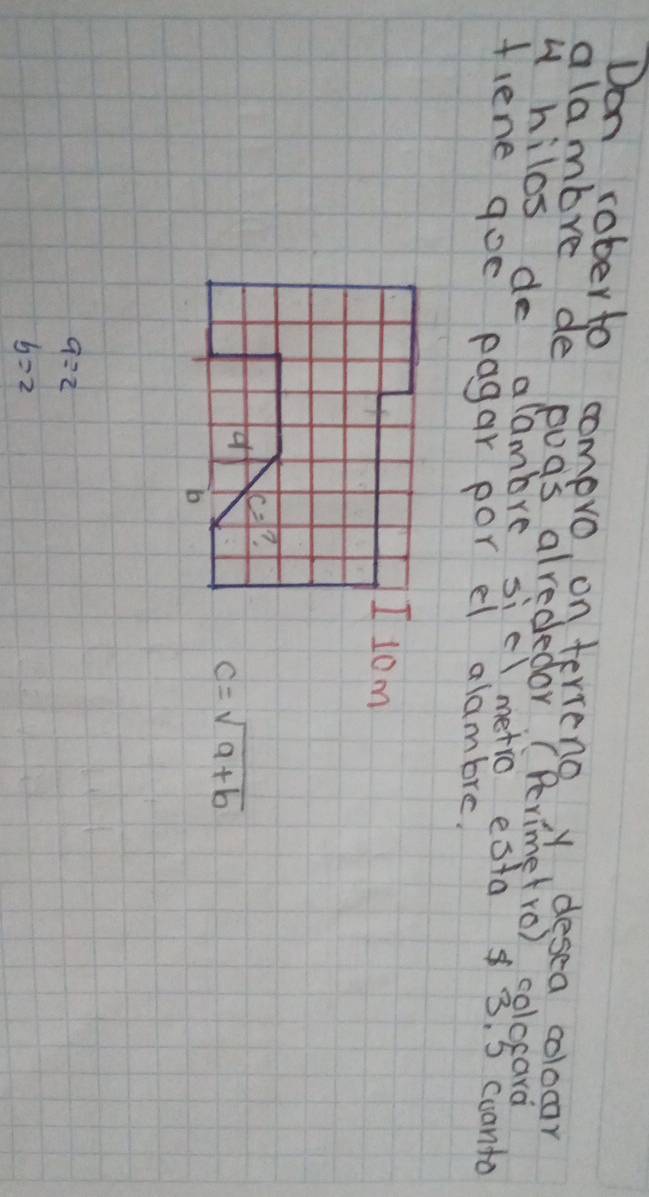 Don roberto compro un terreno y desea colocar
alambre de puas alrededor (Perímetro) colocará
4 hilos de alambre si el metro esta $ 3.5 cuanto
tiene que pagar por el alambre.
I 10m
a
c=?
b
c=√a+b
a=2
b=2